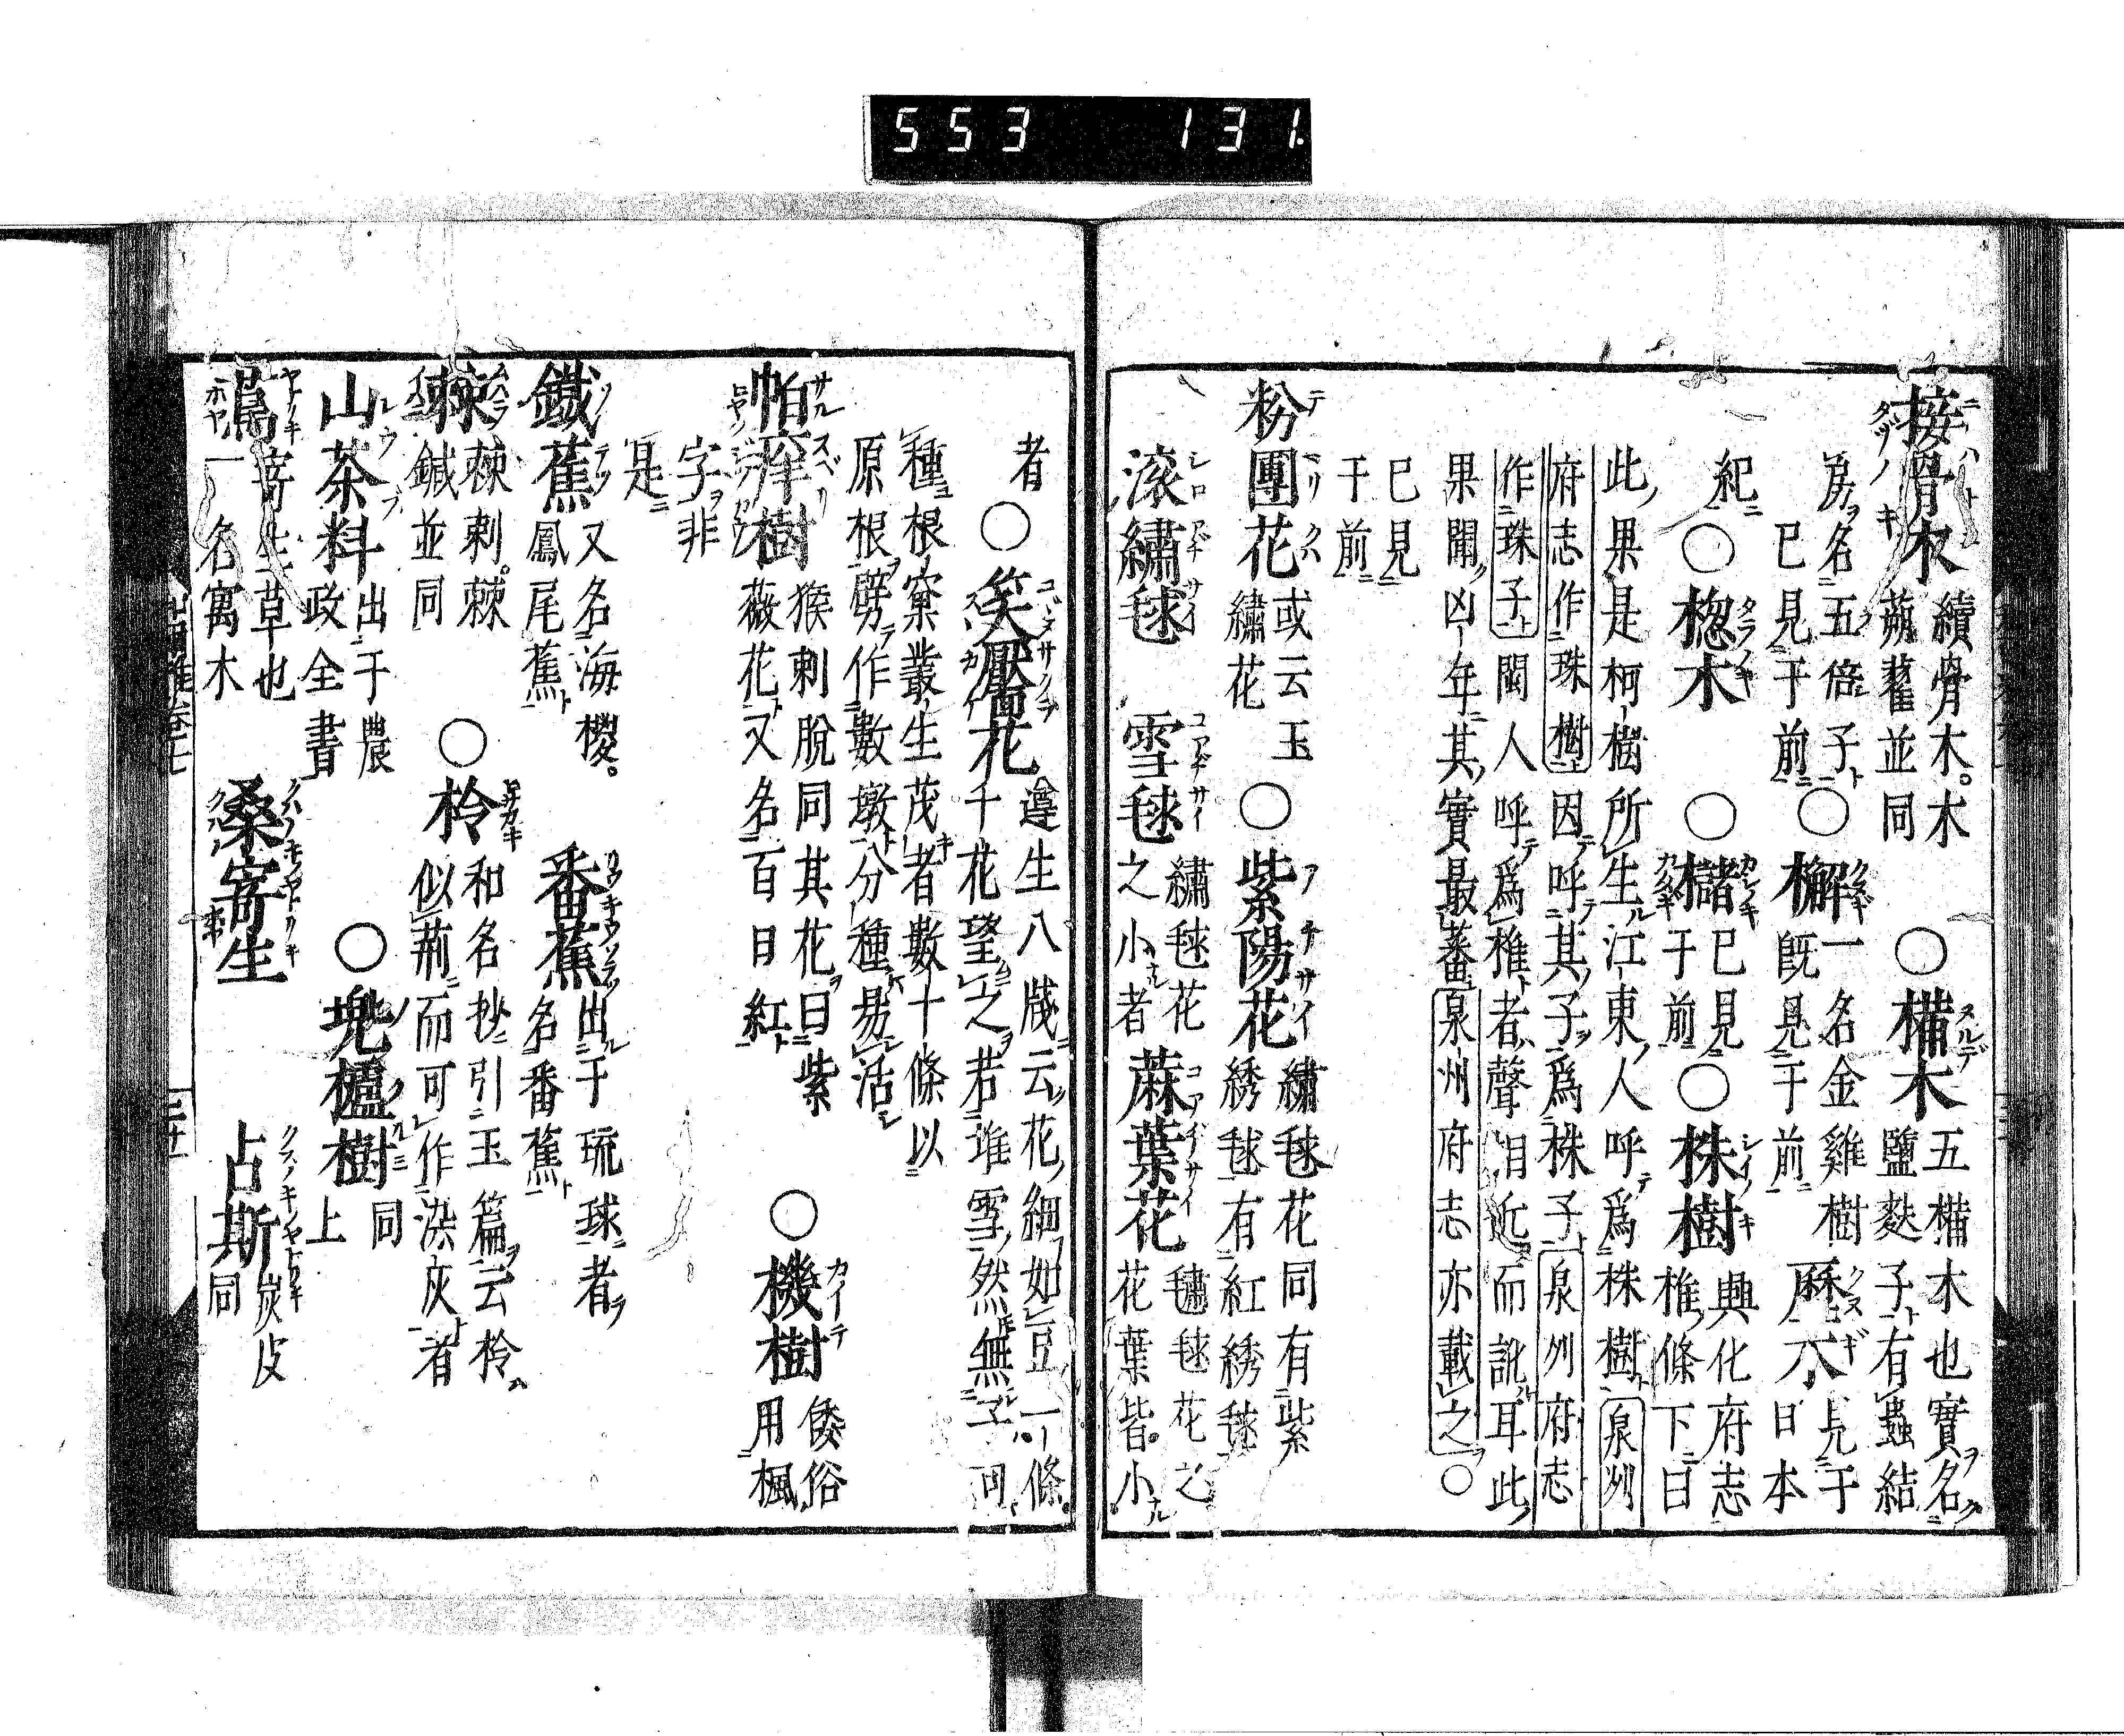 553 131
接骨木 續骨木。木
蒴藋並同
○構木 五構木也實名
鹽麩子有蟲結
房名五倍子
已見于前
○檞 一名金雞樹
既見于前
麻木 見于
日本
紀
○楤木
○櫧 已見
于前
○株樹 興化府志
椎條下曰
此果是柯樹所生江東人呼爲株樹泉州
府志作珠樹因呼其子爲株子泉州府志
作珠子閩人呼爲椎者聲相近而訛耳此
果閙凶年其實最蕃泉州府志亦載之○
已見
于前
粉團花 或云玉
繡花
○紫陽花 繡毬花同有紫
綉毬有紅綉毬
滚繡毬
雪毬 繡毬花
之小者
蔴葉花 繡毬花之
花葉皆小
者
○笑靨花 遵生八牋云花細如豆一條
千花望之若堆雪然無子可
種根窠叢生茂者數十條以
原根劈作數墩分種易活
帕痒樹 猴刺脫同其花曰紫
薇花又名百日紅
○機樹 倭俗
用楓
字非
是
鐵蕉 又名海椶。
鳳尾蕉
番蕉 出于琉球者
名番蕉
棘 棘刺。棘
鍼並同
○柃 和名抄引玉篇云柃
似荊而可作染灰者
山茶料 出于農
政全書
○兠櫨樹 同
上
蔦 寄生草也
一名寓木
桑寄生
占斯 炭皮
同